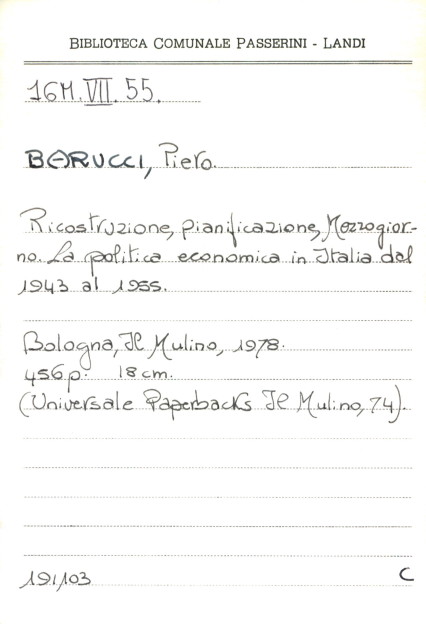 BIBLIOTECA COMUNALE PASSERINI - LANDI
16M.VII.55.
BARUCCI, Piero.
Ricostruzione, pianificazione, Mezzogior-
no. La politica economica in Italia dal
1943 al 1955.
Bologna, Il Mulino, 1978.
456p. 18cm.
(Universale Paperbacks Il Mulino, 74).
191,103 C